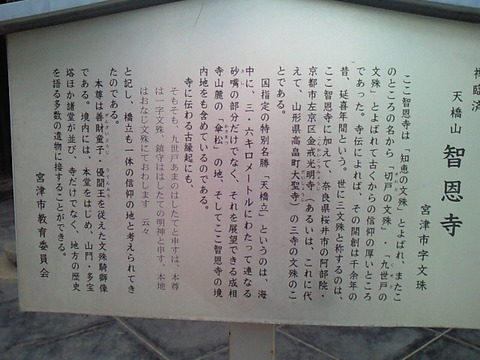 禅臨済
天橋山 智恩寺
宮津市字文珠
ここ智恩寺は「知恵の文殊」とよばれ、またこ
のところの名から「切戸の文殊」・「九世戸の
文殊」とよばれて古くからの信仰の厚いところ
であった。寺伝によれば、その開創は千余年の
昔、延喜年間という。世に三文殊と称するのは、
ここ智恩寺に加えて、奈良県桜井市の阿部院・
京都市左京区金戒光明寺(あるいは、これに代
えて、山形県高畠町大聖寺)の三寺の文殊のこ
とである。
国指定の特別名勝「天橋立」というのは、海
中に、三・六キロメートルにわたって連なる
砂嘴の部分だけでなく、それを展望できる成相
寺山麓の「傘松」の地、そしてここ智恩寺の境
内地をも含めているのである。
寺に伝わる古縁起にも、
そもそも、九世戸あまのはしたてと申すは、本尊
は一字文殊、鎮守ははしたての明神と申す。本地
はおなじ文殊にておわします 云々
と記し、橋立も一体の信仰の地と考えられてき
たのである。
本尊は善財童子、優闐王を従えた文殊騎獅像
である。境内には、本堂をはじめ、山門・多宝
塔ほか諸堂が並び、寺だけでなく、地方の歴史
を語る多数の遺物に接することができる。
宮津市教育委員会